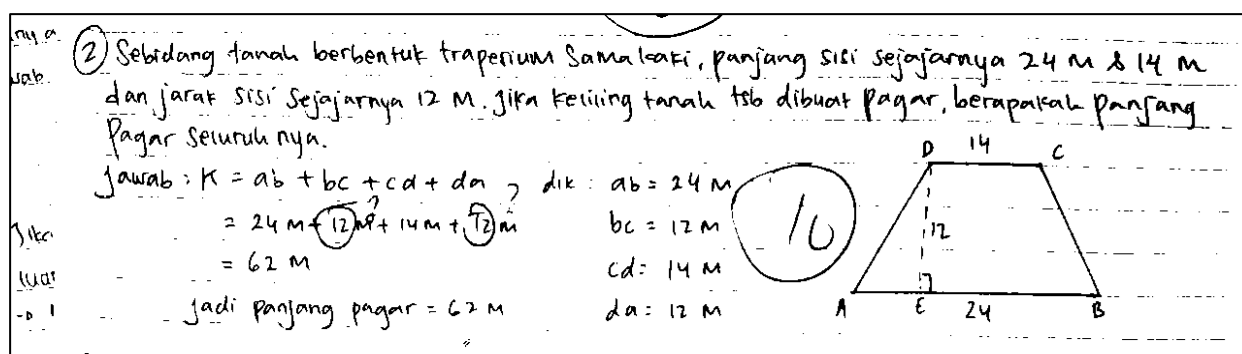 nya
wab.
② Sebidang tanah berbentuk trapesium samakaki, panjang sisi sejajarnya 24 M & 14 M
dan jarak sisi sejajarnya 12 M. Jika keliling tanah tsb dibuat pagar, berapakah panjang
Pagar seluruhnya.
Jawab : K = ab + bc + cd + da ? dik : ab = 24 M
= 24 M + 12 M + 14 M + 12 M bc = 12 M
= 62 M cd = 14 M
Jadi panjang pagar = 62 M da = 12 M
10
D 14 C
12
A E 24 B
Jika
luas